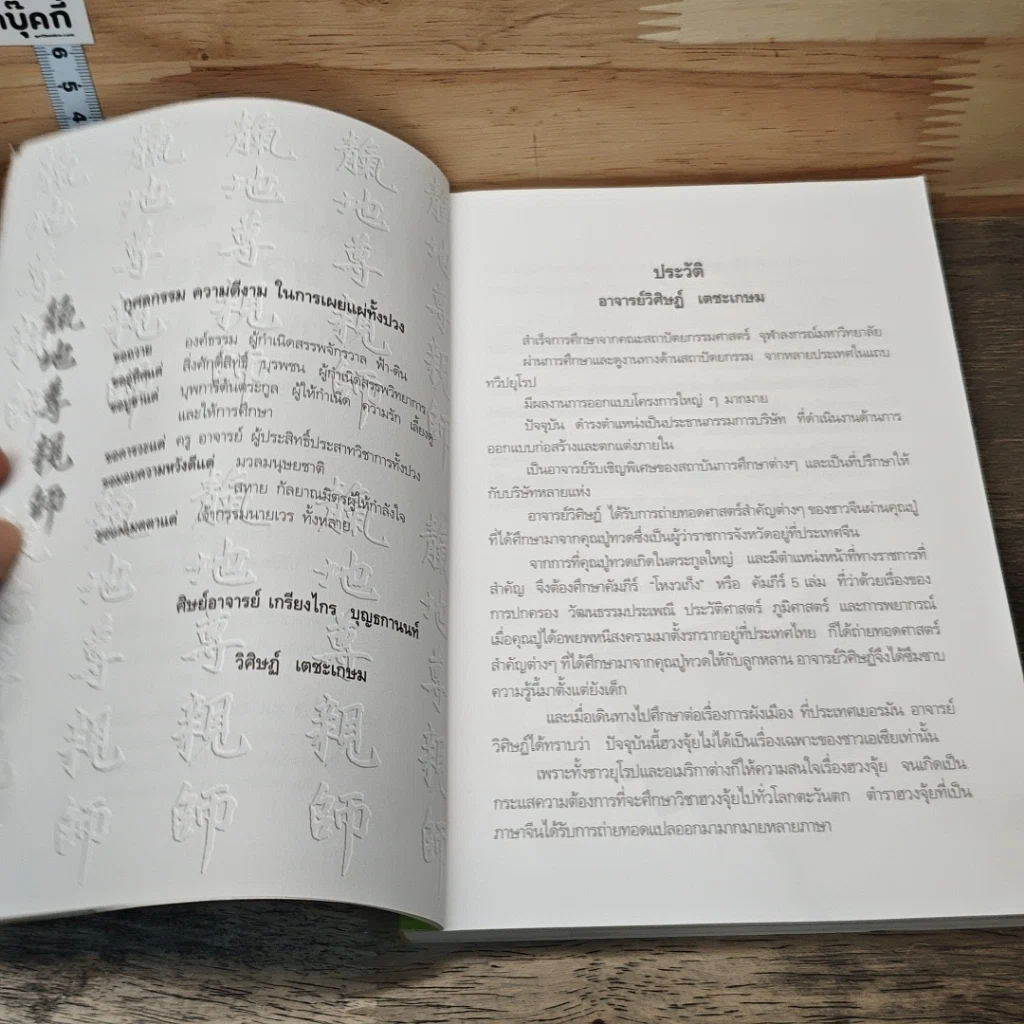 บุ๊คกี้
6
5
4
กุศลกรรม ความดีงาม ในการเผยแผ่ทั้งปวง
ขอถวาย องค์ธรรม ผู้กำเนิดสรรพจักรวาล ฟ้า-ดิน
ขออุทิศแด่ สิ่งศักดิ์สิทธิ์ บูรพชน ผู้กำเนิดสรรพวิทยาการ
ขอบูชาแด่ บุพการีต้นตระกูล ผู้ให้กำเนิด ความรัก เลี้ยงดู
และให้การศึกษา
ขอคารวะแด่ ครู อาจารย์ ผู้ประสิทธิ์ประสาทวิชาการทั้งปวง
ขอมอบความหวังดีแด่ มวลมนุษยชาติ
สหาย กัลยาณมิตรผู้ให้กำลังใจ
เจ้ากรรมนายเวร ทั้งหลาย
地尊親師
ศิษย์อาจารย์ เกรียงไกร บุญธกานนท์
วิศิษฏ์ เตชะเกษม
ประวัติ
อาจารย์วิศิษฏ์ เตชะเกษม
สำเร็จการศึกษาจากคณะสถาปัตยกรรมศาสตร์ จุฬาลงกรณ์มหาวิทยาลัย
ผ่านการศึกษาและดูงานทางด้านสถาปัตยกรรม จากหลายประเทศในแถบ
ทวีปยุโรป
มีผลงานการออกแบบโครงการใหญ่ ๆ มากมาย
ปัจจุบัน ดำรงตำแหน่งเป็นประธานกรรมการบริษัท ที่ดำเนินงานด้านการ
ออกแบบก่อสร้างและตกแต่งภายใน
เป็นอาจารย์รับเชิญพิเศษของสถาบันการศึกษาต่างๆ และเป็นที่ปรึกษาให้
กับบริษัทหลายแห่ง
อาจารย์วิศิษฏ์ ได้รับการถ่ายทอดศาสตร์สำคัญต่างๆ ของชาวจีนผ่านคุณปู่
ที่ได้ศึกษามาจากคุณปู่ทวดซึ่งเป็นผู้ว่าราชการจังหวัดอยู่ที่ประเทศจีน
จากการที่คุณปู่ทวดเกิดในตระกูลใหญ่ และมีตำแหน่งหน้าที่ทางราชการที่
สำคัญ จึงต้องศึกษาคัมภีร์ "โหงวเก็ง" หรือ คัมภีร์ 5 เล่ม ที่ว่าด้วยเรื่องของ
การปกครอง วัฒนธรรมประเพณี ประวัติศาสตร์ ภูมิศาสตร์ และการพยากรณ์
เมื่อคุณปู่ได้อพยพหนีสงครามมาตั้งรกรากอยู่ที่ประเทศไทย ก็ได้ถ่ายทอดศาสตร์
สำคัญต่างๆ ที่ได้ศึกษามาจากคุณปู่ทวดให้กับลูกหลาน อาจารย์วิศิษฏ์จึงได้ซึมซาบ
ความรู้นี้มาตั้งแต่ยังเด็ก
และเมื่อเดินทางไปศึกษาต่อเรื่องการผังเมือง ที่ประเทศเยอรมัน อาจารย์
วิศิษฏ์ได้ทราบว่า ปัจจุบันนี้ฮวงจุ้ยไม่ได้เป็นเรื่องเฉพาะของชาวเอเซียเท่านั้น
เพราะทั้งชาวยุโรปและอเมริกาต่างก็ให้ความสนใจเรื่องฮวงจุ้ย จนเกิดเป็น
กระแสความต้องการที่จะศึกษาวิชาฮวงจุ้ยไปทั่วโลกตะวันตก ตำราฮวงจุ้ยที่เป็น
ภาษาจีนได้รับการถ่ายทอดแปลออกมามากมายหลายภาษา